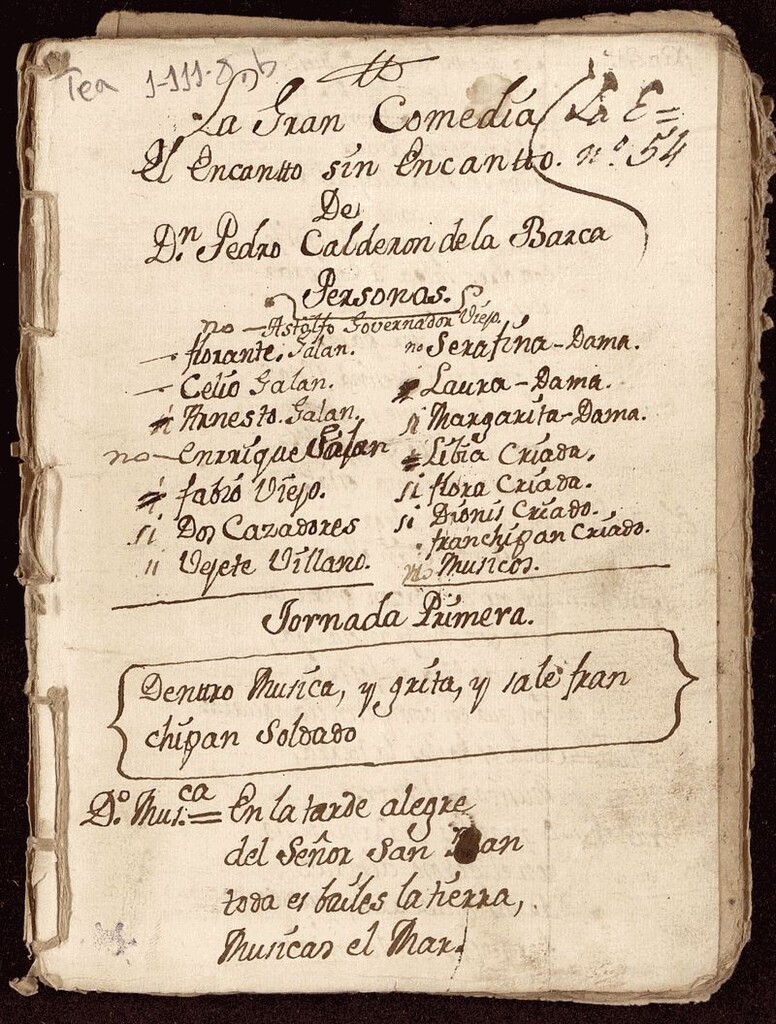 Tea 1-111-8, b
La Gran Comedia
La E=
nº 54
El Encantto sin Encantto.
De
Dn. Pedro Calderon de la Barca
Personas.
no - Astolfo Governador Viejo.
- florante. Galan.
- Celio Galan.
si Arnesto. Galan.
no - Enrrique Galan
si fabio Viejo.
si Dos Cazadores
si Vejete Villano.
no Serafina - Dama.
Laura - Dama.
si Margarita - Dama.
Libia Criada.
si flora Criada.
si Dionis Criado.
franchipan Criado.
no Musicos.
Jornada Primera.
Denttro Musica, y grita, y sale fran
chipan Soldado
Dº. Mus.ca = En la tarde alegre
del Señor San Juan
toda es bailes la tierra,
Musicas el Mar.